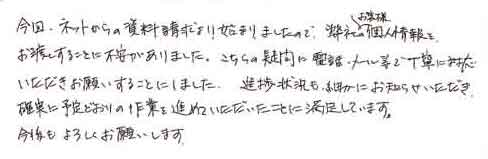 今回、ネットからの資料請求より始まりましたので、弊社のお客様個人情報を
お渡しすることに不安がありました。こちらの疑問に電話・メール等で丁寧にお応え
いただきお願いすることにしました。進捗状況も細かにお知らせいただき、
確実に予定どおりの作業を進めていただいたことに満足しています。
今後もよろしくお願いします。